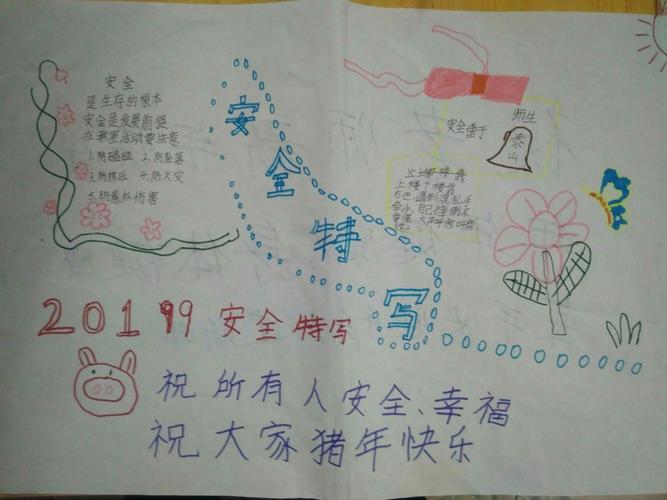 安全
是生存的根本
安全是发展前提
在教室活动要注意
1.防磕碰 2.防坠落
3.防挤压 4.防火灾
5.防意外伤害
安全特写
师生
安全重于
泰山
上下楼梯靠
上楼下楼靠
右走,遇到混乱手
201999 安全特写
祝所有人安全、幸福
祝大家猪年快乐